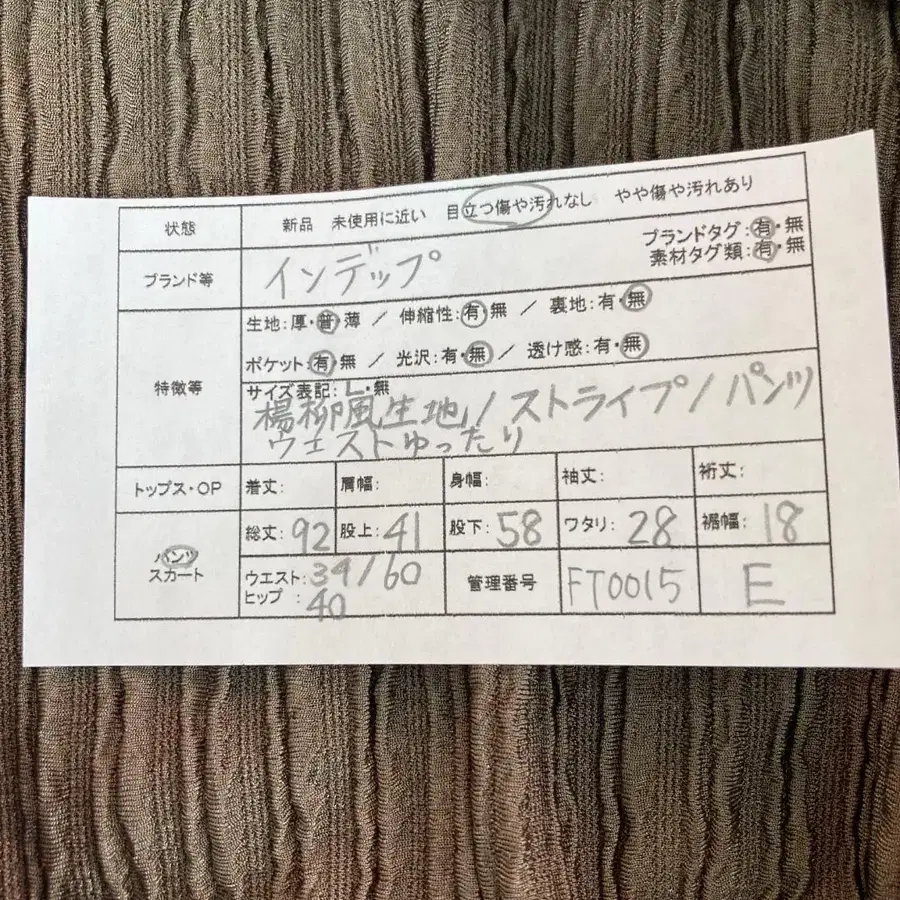 状態 新品 未使用に近い 目立つ傷や汚れなし やや傷や汚れあり
ブランド等 インデップ ブランドタグ:有・無
素材タグ類:有・無
特徴等 生地:厚・普・薄 / 伸縮性:有・無 / 裏地:有・無
ポケット:有・無 / 光沢:有・無 / 透け感:有・無
サイズ表記:L・無
楊柳風生地/ストライプ/パンツ
ウエストゆったり
トップス・OP 着丈: 肩幅: 身幅: 袖丈: 裄丈:
パンツ 総丈:92 股上:41 股下:58 ワタリ:28 裾幅:18
スカート ウエスト:34/60 管理番号 FT0015 E
ヒップ:40